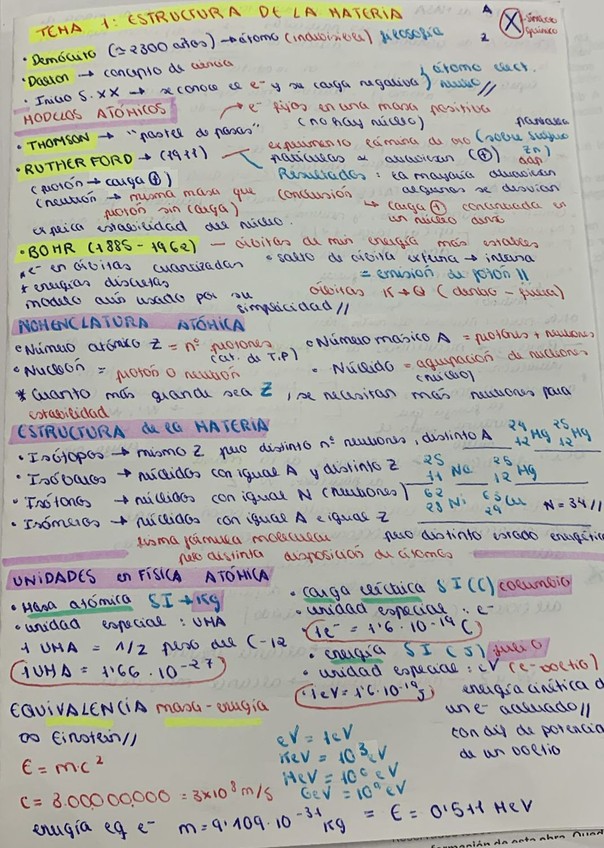 TEMA 1: ESTRUCTURA DE LA MATERIA
A
Z
X
símbolo
químico
· Demócrito (≃ 2300 años) → átomo (indivisible) filosofía
· Dalton → concepto de ciencia
· Inicio S. XX → se conoce el e⁻ y su carga negativa) átomo elect. neutro //
MODELOS ATÓMICOS
→ e⁻ fijos en una masa positiva
(no hay núcleo)
· THOMSON → "pastel de pasas"
· RUTHERFORD → (1911)
experimento lámina de oro (sobre sulfuro Zn)
pantalla
partículas α atraviesan (+)
(protón → carga ⊕)
Resultados: la mayoría atraviesan
algunas se desvían
(neutrón → misma masa que
protón sin carga)
conclusión
↳ carga ⊕
en un núcleo
explica estabilidad del núcleo.
· BOHR (1885 - 1962) — órbitas de mín energía más estables
* e⁻ en órbitas cuantizadas
• salto de órbita externa → interna
* energías discretas
= emisión de fotón //
modelo aún usado por su
simplicidad //
órbitas K → Q (dentro - fuera)
NOMENCLATURA ATÓMICA
• Número atómico Z = nº protones
(cat. de T.P)
• Número másico A = protones + neutrones
• Nucleón = protón o neutrón
• Núclido = agrupación de nucleones
(núcleo)
* Cuanto más grande sea Z, se necesitan más neutrones para
estabilidad
ESTRUCTURA de la MATERIA
• Isótopos → mismo Z pero distinto nº neutrones, distinto A 24 12 Mg 25 12 Mg
• Isóbaros → núclidos con igual A y distinto Z 25 11 Na 25 12 Mg
• Isótonos → núclidos con igual N (neutrones) 62 28 Ni 63 29 Cu N = 34 //
• Isómeros → núclidos con igual A e igual Z
pero distinto estado energético
misma fórmula molecular
pero distinta disposición de átomos
UNIDADES en FÍSICA ATÓMICA
• Masa atómica SI → Kg
• unidad especial : UMA
1 UMA = 1/2 peso del C-12
1 UMA = 1'66 · 10⁻²⁷
• carga eléctrica SI (C) coulombio
• unidad especial : e⁻
1e⁻ = 1'6 · 10⁻¹⁹ C
• energía SI (J) julio
• unidad especial : eV (e⁻ voltio)
1 eV = 1'6 · 10⁻¹⁹ J
energía cinética d
un e⁻ acelerado //
con dif de potencia
de un voltio
EQUIVALENCIA masa-energía
∞ Einstein //
E = m·c²
c = 3.00000000 = 3×10⁸ m/s
eV = 1eV
KeV = 10³ eV
MeV = 10⁶ eV
GeV = 10⁹ eV
energía eq e⁻ m = 9'109 · 10⁻³¹ Kg = E = 0'511 MeV